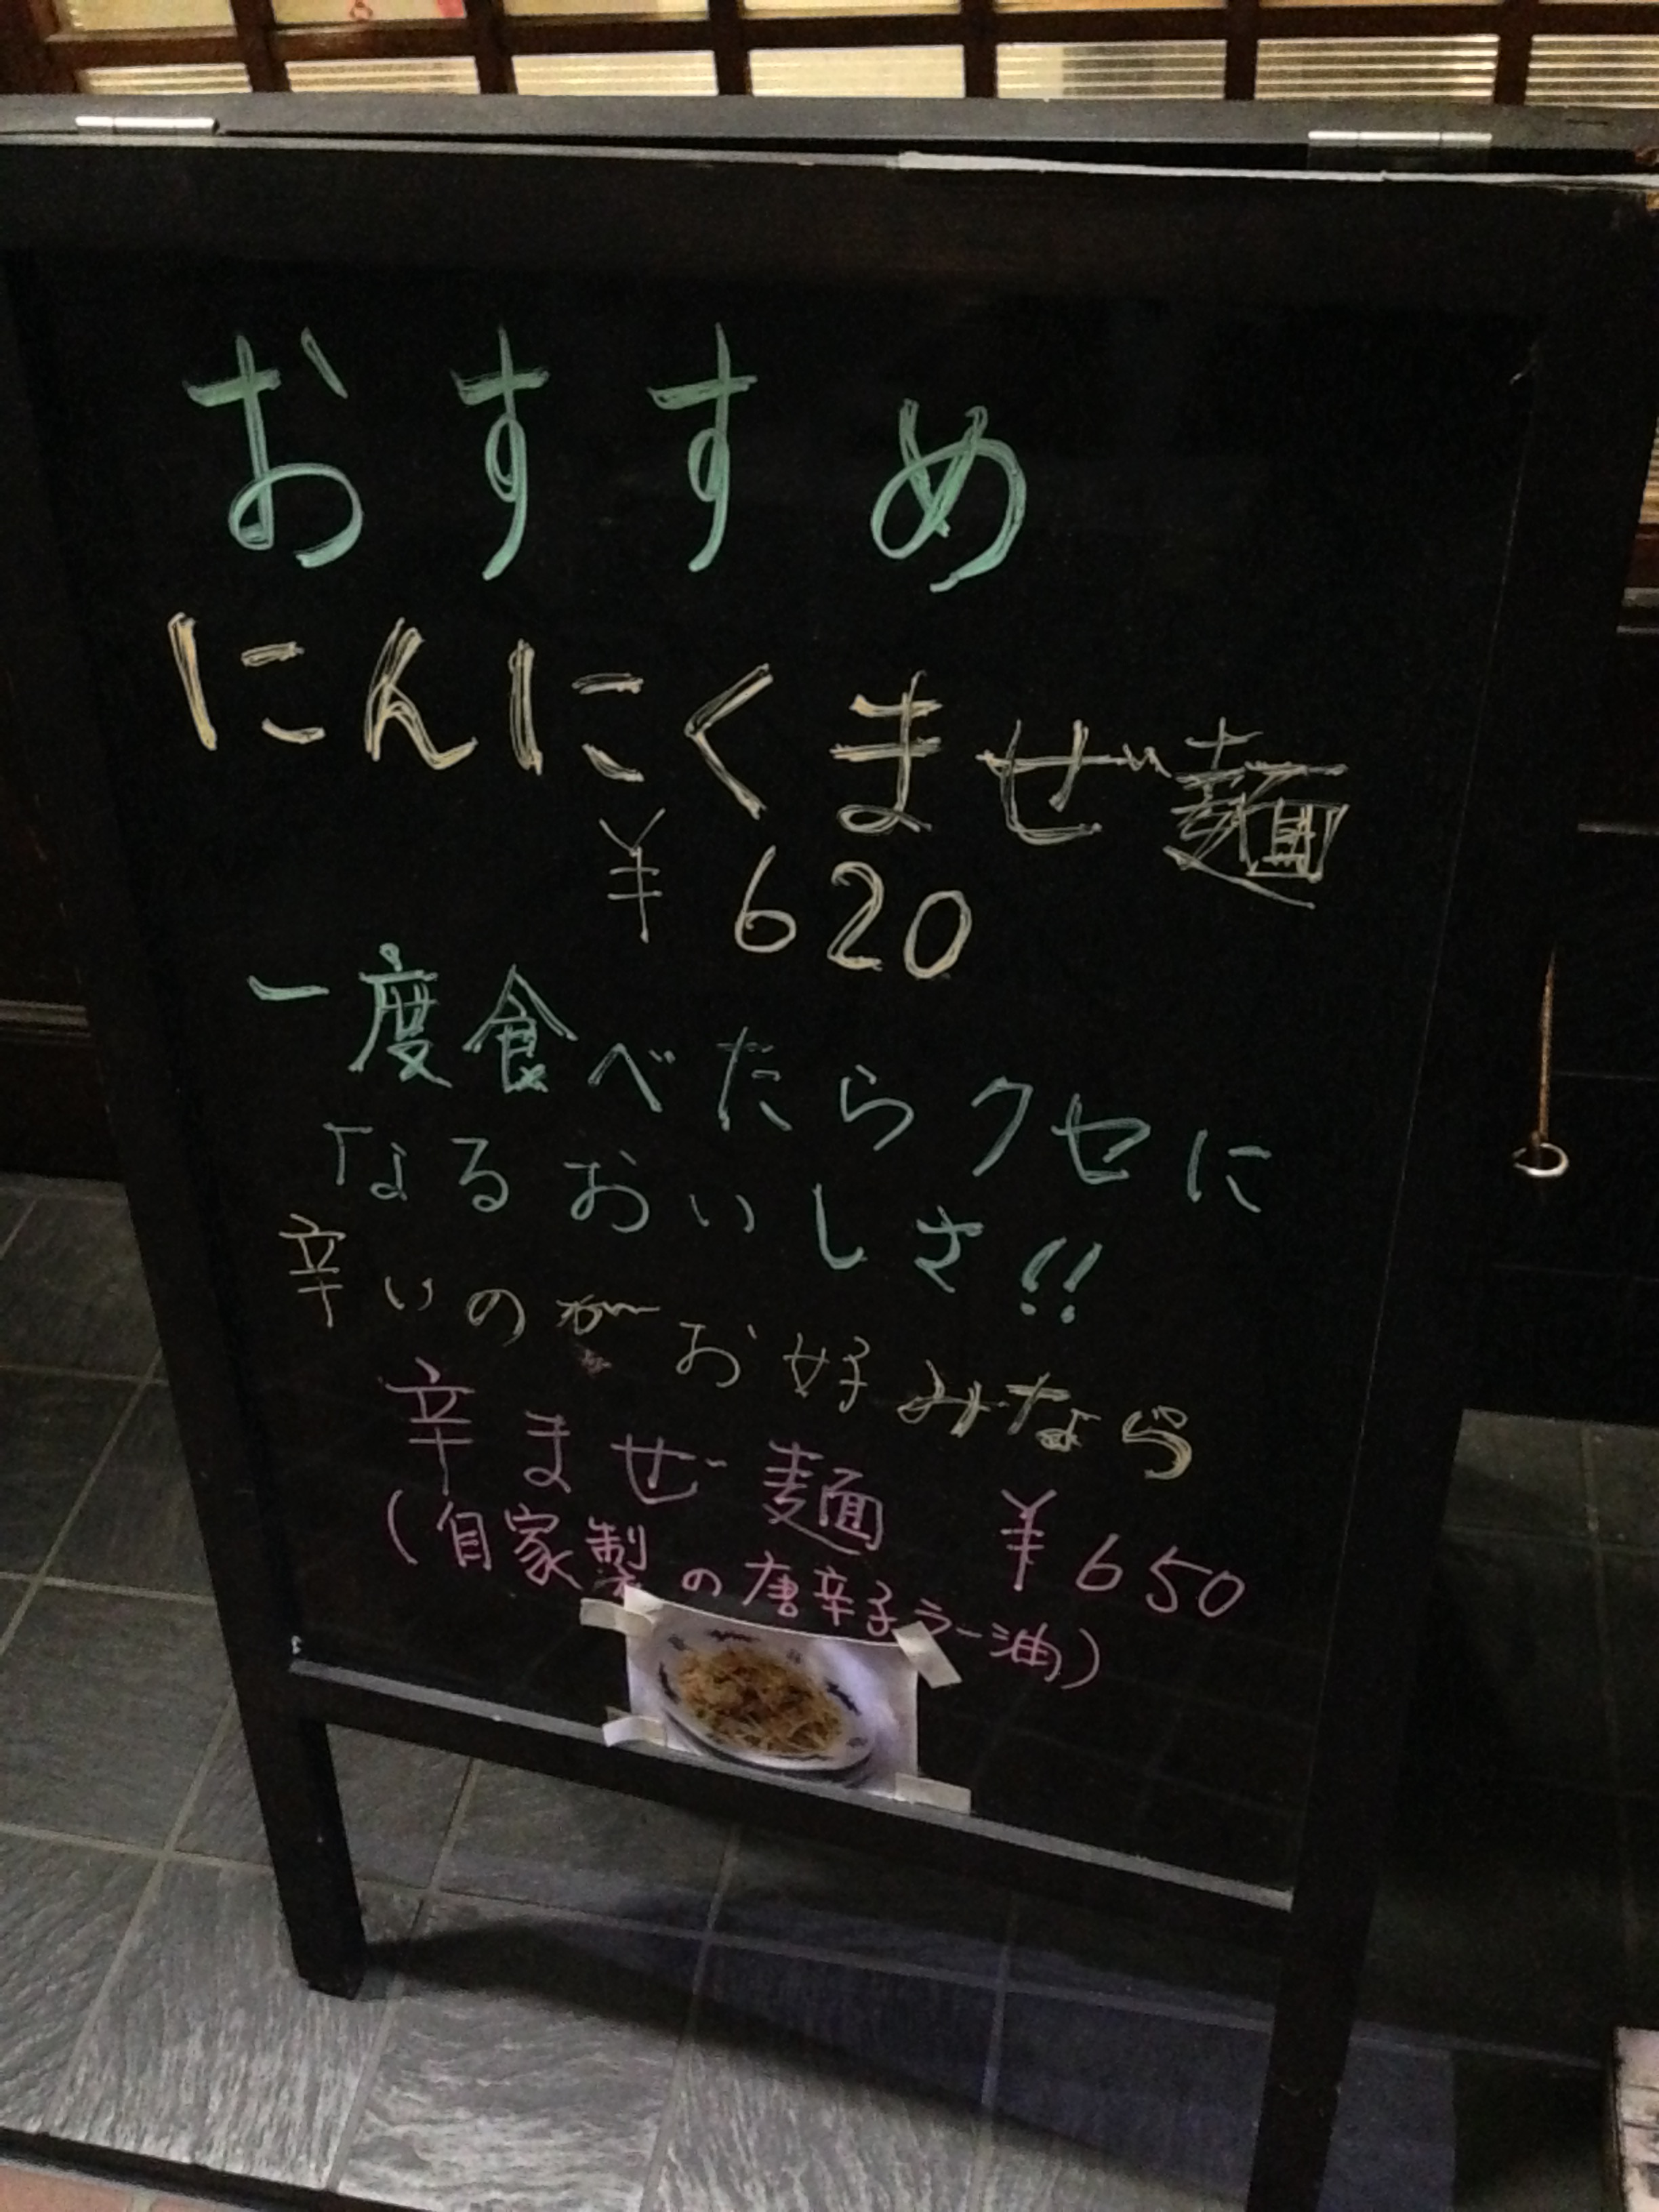 おすすめ
にんにくまぜ麺
¥620
一度食べたらクセに
なるおいしさ!!
辛いのがお好みなら
辛まぜ麺 ¥650
(自家製の唐辛子ラー油)